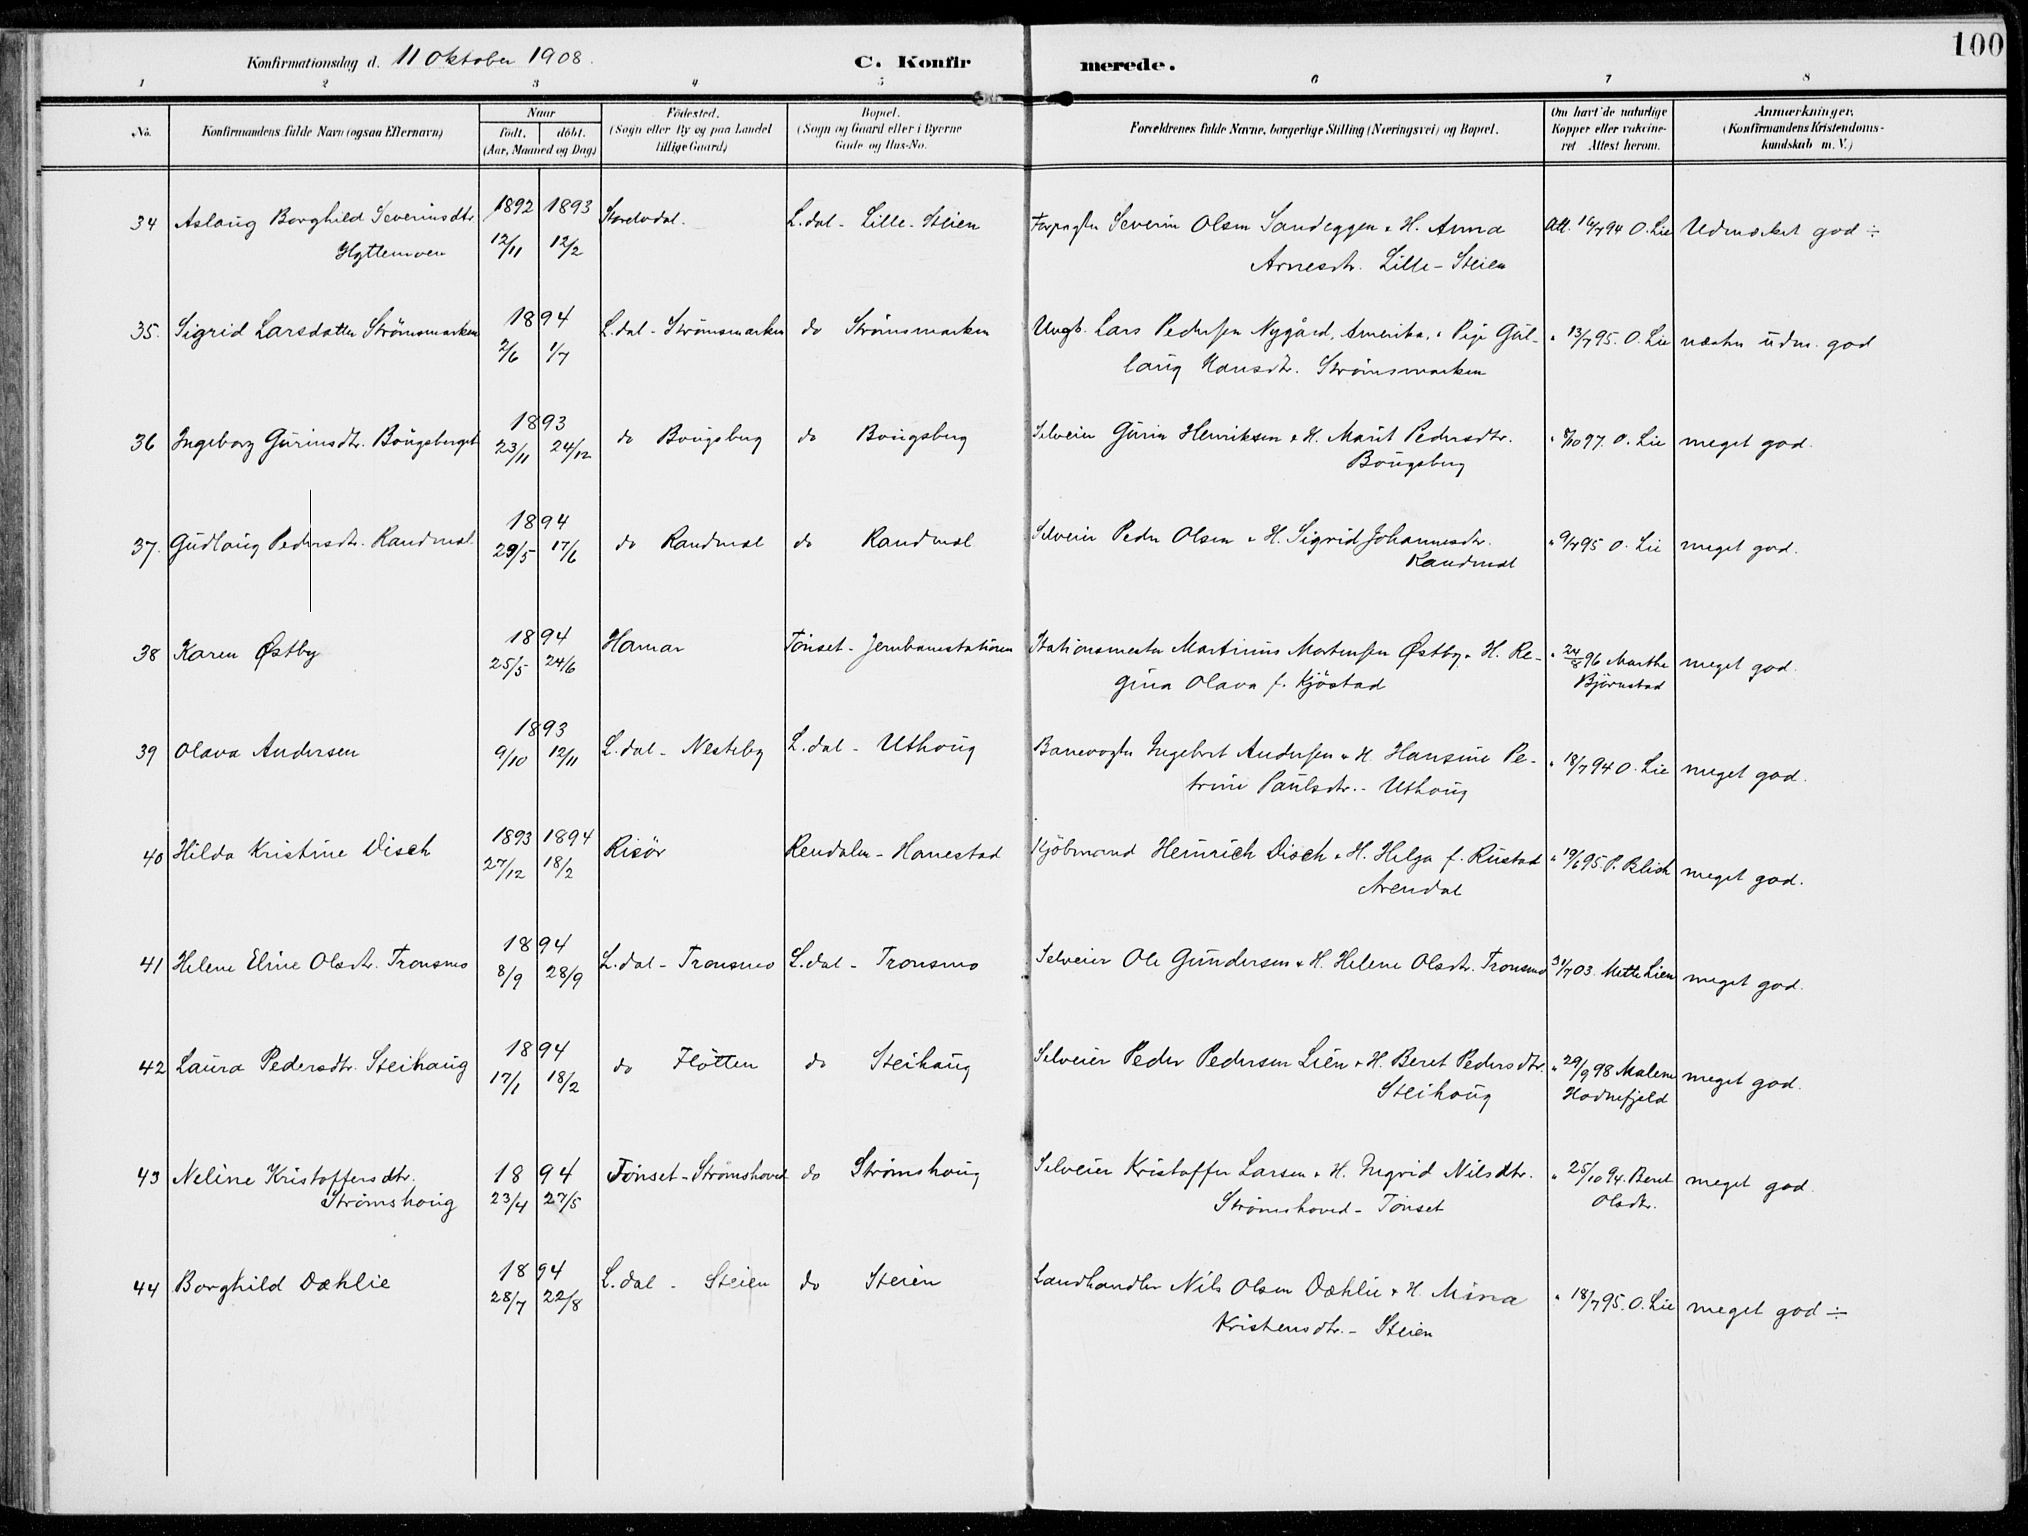 100
Konfirmationsdag d. 11 Oktober 1908.
C. Konfirmerede.
1 2 3 4 5 6 7 8
No. Konfirmandens fulde Navn (ogsaa Efternavn) Naar født, døbt. (Aar, Maaned og Dag) Fødested. (Sogn eller By og paa Landet tillige Gaard) Bopæl. (Sogn og Gaard eller i Byerne Gade og Hus-No. Forældrenes fulde Navne, borgerlige Stilling (Næringsvei) og Bopæl. Om havt de naturlige Kopper eller vakcineret Attest herom. Anmærkninger. (Konfirmandens Kristendomskundskab m. V.)
34 Aslaug Borghild Severinsdtr. 1892 1893 Storelvdal. L.dal - Lille-Steien Forpagter Severin Olsen Sandeggen & H. Anna Att. 16/7 94 O. Lie Udmærket god ÷
Hyttemoen 12/11 12/2 Arnesdtr. Lille-Steien
35. Sigrid Larsdatter Strømsmarken 1894 L.dal - Strømsmarken do Strømsmarken Ungk. Lars Pedersen Nygård, Amerika, & Pige Gul- " 13/7 95. O. Lie næsten udm. god
2/6 1/7 laug Hansdtr. Strømsmarken
36 Ingeborg Gurinsdtr. Bougsberget 1893 do Bougsberg do Bougsberg Selveier Gurin Henriksen & H. Marit Pedersdtr. " 8/10 97. O. Lie meget god.
23/11 24/12 Bougsberg
37. Gudlaug Pedersdtr. Randmæl 1894 do Randmæl do Randmæl Selveier Peder Olsen & H. Sigrid Johannesdtr. " 9/7 95 O. Lie meget god.
29/5 17/6 Randmæl
38 Karen Østby 1894 Hamar Tønset - Jernbanestationen Stationsmester Martinius Mortensen Østby & H. Re- " 24/8 96 Marthe meget god.
25/5 24/6 gina Olava f. Kjøstad Bjørnstad
39 Olava Andersen 1893 L.dal - Nesteby L.dal - Uthoug Banevogter Ingebret Andersen & H. Hansine Pe- " 18/7 94 O. Lie meget god.
9/10 12/11 trine Paulsdtr. - Uthoug
40 Hilda Kristine Disch 1893 1894 Risør Rendalen - Hanestad Kjøbmand Heinrich Disch & H. Helga f. Rustad " 19/6 95 P. Blich meget god.
27/12 18/2 Arendal
41 Helene Eline Olsdtr. Tronsmo 1894 L.dal - Tronsmo L.dal - Tronsmo Selveier Ole Gundersen & H. Helene Olsdtr. Tronsmo 31/7 03. Mette Lien meget god.
8/9 28/9
42 Laura Pedersdtr. Steihaug 1894 do Fløtten do Steihaug Selveier Peder Pedersen Lien & H. Beret Pedersdtr. " 29/9 98 Malene meget god.
17/1 18/2 Steihoug Hodnefjeld
43 Neline Kristoffersdtr. 1894 Tønset - Strømshoved do Strømshoug Selveier Kristoffer Larsen & H. Ingrid Nilsdtr. " 25/10 94. Beret meget god.
Strømshoug 23/4 27/5 Strømshoved - Tønset Olsdtr.
44 Borghild Dæhlie 1894 L.dal - Steien do Steien Landhandler Nils Olsen Dæhlie & H. Mina " 18/7 95. O. Lie meget god ÷
28/7 22/8 Kristensdtr. - Steien